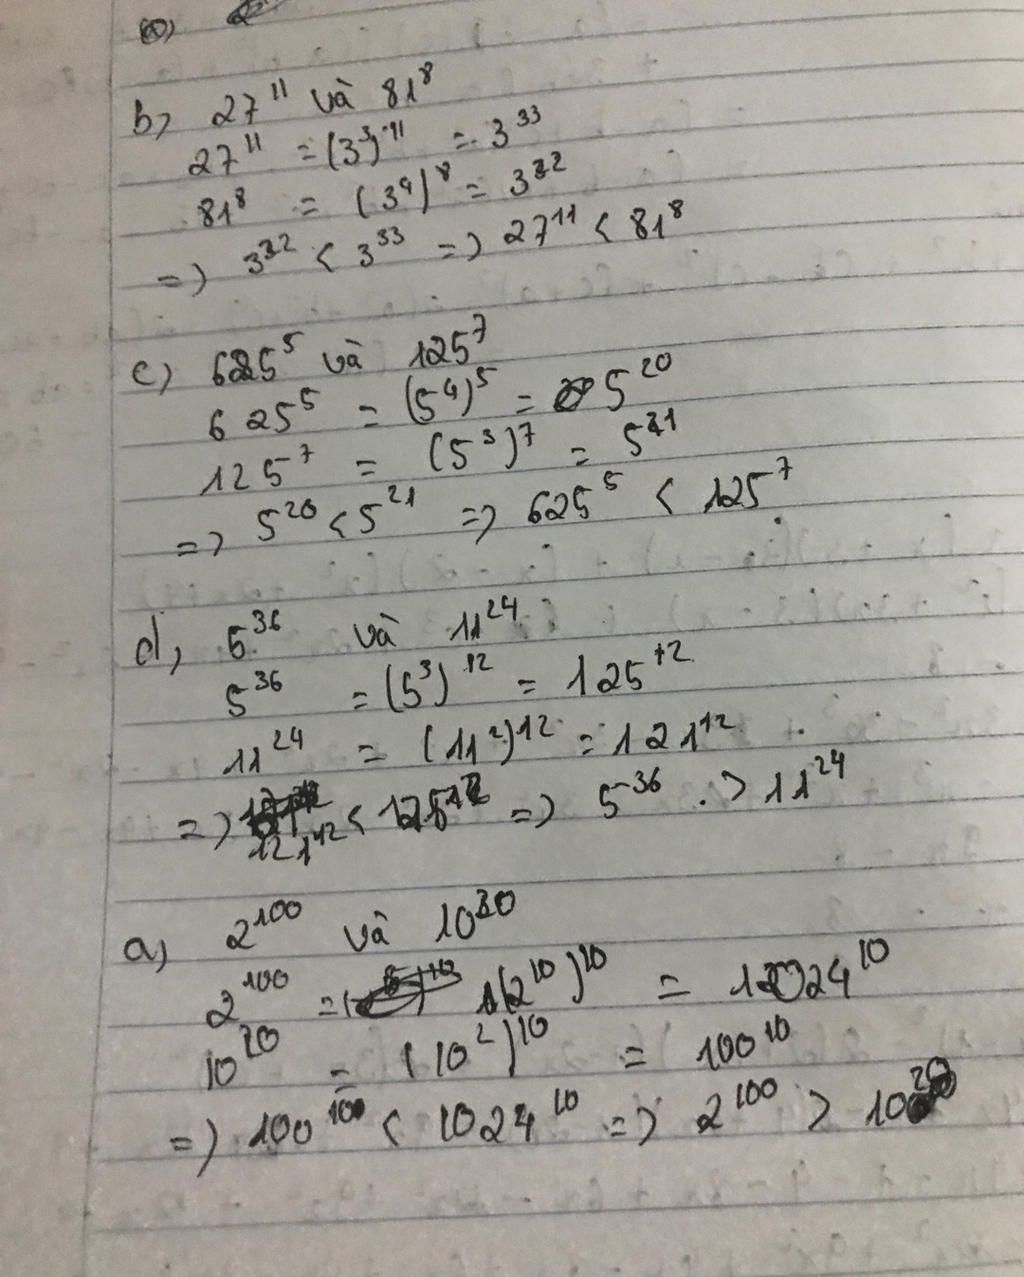 b) 27^11 và 81^8
27^11 = (3^3)^11 = 3^33
81^8 = (3^4)^8 = 3^32
=> 3^32 < 3^33 => 27^11 < 81^8
c) 625^5 và 125^7
625^5 = (5^4)^5 = 5^20
125^7 = (5^3)^7 = 5^21
=> 5^20 < 5^21 => 625^5 < 125^7
d, 5^36 và 11^24
5^36 = (5^3)^12 = 125^12
11^24 = (11^2)^12 = 121^12
=> 121^12 < 125^12 => 5^36 > 11^24
a) 2^100 và 10^30
2^100 = (2^10)^10 = 1024^10
10^20 = (10^2)^10 = 100^10
=> 100^100 < 1024^10 => 2^100 > 10^20